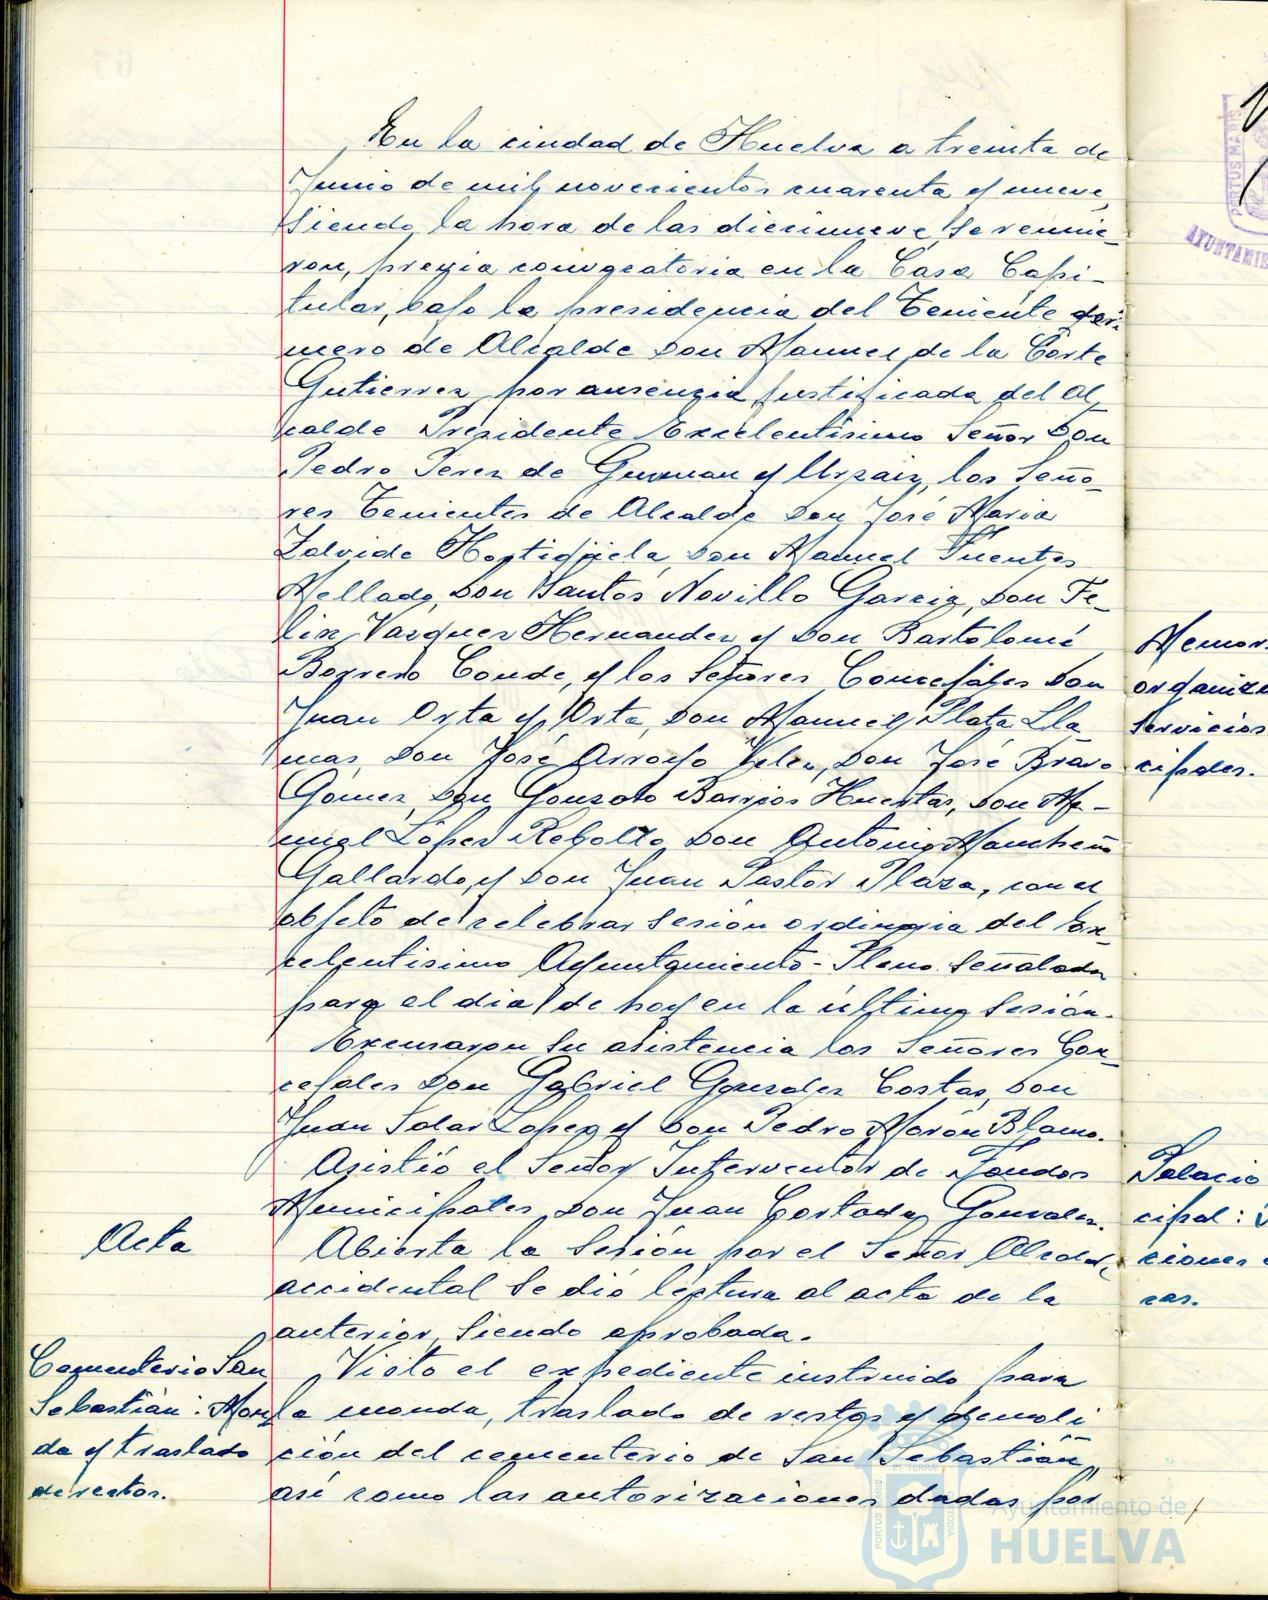 En la ciudad de Huelva a treinta de
Junio de mil novecientos cuarenta y nueve,
siendo la hora de las diecinueve, se reunie-
ron, previa convocatoria en la Casa Capi-
tular, bajo la presidencia del Teniente pri-
mero de Alcalde Don Manuel de la Corte
Gutierrez, por ausencia justificada del Al-
calde Presidente Excelentísimo Señor Don
Pedro Perez de Guzman y Urzaiz, los Seño-
res Tenientes de Alcalde Don José Maria
Zalvide Hortigüela, Don Manuel Fuentes
Mellado, Don Santos Novillo Garcia, Don Fe-
lix Vazquez Hernandez y Don Bartolomé
Borrero Conde, y los Señores Concejales Don
Juan Orta y Orta, Don Manuel Plata Lla-
mas, Don José Arroyo Velez, Don José Bravo
Gomez, Don Gonzalo Barrios Huertas, Don Ma-
nuel López Rebollo, Don Antonio Mancheño
Gallardo, y Don Juan Pastor Plaza, con el
objeto de celebrar sesion ordinaria del Ex-
celentisimo Ayuntamiento-Pleno señalada
para el dia de hoy en la última sesión.
Excusaron su asistencia los Señores Con-
cejales Don Gabriel Gonzalez Costas, Don
Juan Solar Lopez y Don Pedro Morón Blanco.
Asistió el Señor Interventor de Fondos
Municipales, Don Juan Cortada Gonzalez.
Acta
Abierta la Sesión por el Señor Alcalde
accidental se dió lectura al acta de la
anterior, siendo aprobada.
Cementerio San
Sebastián: Mon-
da y traslado
de restos.
Visto el expediente instruido para
la monda, traslado de restos y demoli-
ción del cementerio de San Sebastián,
así como las autorizaciones dadas por
Memor.
organiza
servicios
cipales.
Palacio
cipal:
ciones
cas.
PORTUS MARIS
AYUNTAMIE
Ayuntamiento de
HUELVA